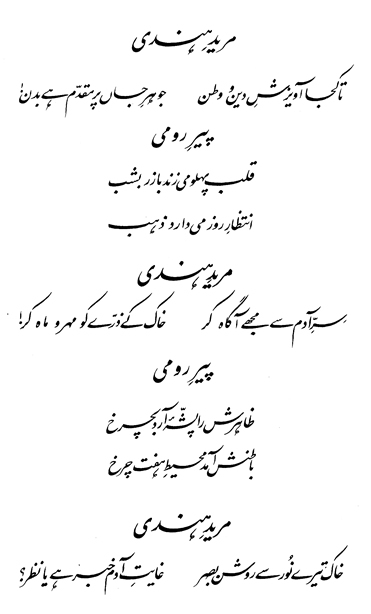 مریدِ ہندی
تا کجا آویزشِ دین و وطن جوہرِ جاں پر مقدّم ہے بدن!
پیرِ رومی
قلب پہلو می زند با زر بشب
انتظارِ روز می دارد ذہب
مریدِ ہندی
سِرِّ آدم سے مجھے آگاہ کر خاک کے ذرّے کو مہر و ماہ کر!
پیرِ رومی
ظاہرش را پشّۂ آرد بچرخ
باطنش آمد محیطِ ہفت چرخ
مریدِ ہندی
خاک تیرے نُور سے روشن بصر غایتِ آدم خبر ہے یا نظر؟